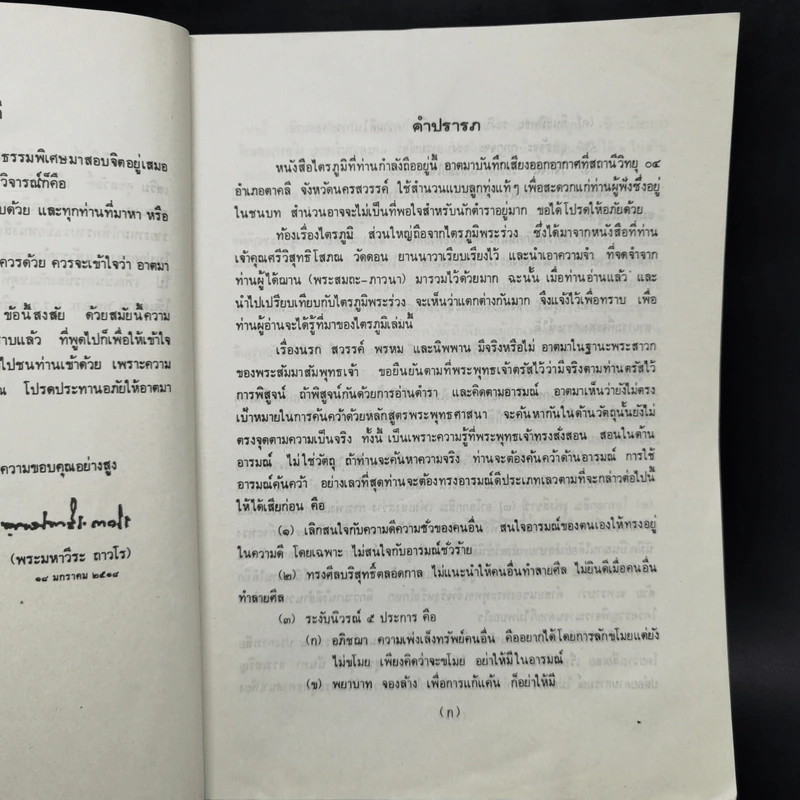 ธรรมพิเศษมาสอบจิตอยู่เสมอ
วิจารณ์ก็คือ
บด้วย และทุกท่านที่มาหา หรือ
ควรด้วย ควรจะเข้าใจว่า อาตมา
ข้อนี้สงสัย ด้วยสมัยนี้ความ
ราบแล้ว ที่พูดไปก็เพื่อให้เข้าใจ
ไปชนท่านเข้าด้วย เพราะความ
ณ โปรดประทานอภัยให้อาตมา
ความขอบคุณอย่างสูง
(พระมหาวีระ ถาวโร)
๑๘ มกราคม ๒๕๑๘
คำปรารภ
หนังสือไตรภูมิที่ท่านกำลังถืออยู่นี้ อาตมาบันทึกเสียงออกอากาศที่สถานีวิทยุ ๐๔
อำเภอตาคลี จังหวัดนครสวรรค์ ใช้สำนวนแบบลูกทุ่งแท้ๆ เพื่อสะดวกแก่ท่านผู้ฟังซึ่งอยู่
ในชนบท สำนวนอาจจะไม่เป็นที่พอใจสำหรับนักตำราอยู่มาก ขอได้โปรดให้อภัยด้วย
ท้องเรื่องไตรภูมิ ส่วนใหญ่ถือจากไตรภูมิพระร่วง ซึ่งได้มาจากหนังสือที่ท่าน
เจ้าคุณศรีวิสุทธิโสภณ วัดดอน ยานนาวาเรียบเรียงไว้ และนำเอาความจำ ที่จดจำจาก
ท่านผู้ได้ฌาน (พระสมถะ-ภาวนา) มารวมไว้ด้วยมาก ฉะนั้น เมื่อท่านอ่านแล้ว และ
นำไปเปรียบเทียบกับไตรภูมิพระร่วง จะเห็นว่าแตกต่างกันมาก จึงแจ้งไว้เพื่อทราบ เพื่อ
ท่านผู้อ่านจะได้รู้ที่มาของไตรภูมิเล่มนี้
เรื่องนรก สวรรค์ พรหม และนิพพาน มีจริงหรือไม่ อาตมาในฐานะพระสาวก
ของพระสัมมาสัมพุทธเจ้า ขอยืนยันตามที่พระพุทธเจ้าตรัสไว้ว่ามีจริงตามท่านตรัสไว้
การพิสูจน์ ถ้าพิสูจน์กันด้วยการอ่านตำรา และคิดตามอารมณ์ อาตมาเห็นว่ายังไม่ตรง
เป้าหมายในการค้นคว้าด้วยหลักสูตรพระพุทธศาสนา จะค้นหากันในด้านวัตถุนั้นยังไม่
ตรงจุดตามความเป็นจริง ทั้งนี้ เป็นเพราะความรู้ที่พระพุทธเจ้าทรงสั่งสอน สอนในด้าน
อารมณ์ ไม่ใช่วัตถุ ถ้าท่านจะค้นหาความจริง ท่านจะต้องค้นคว้าด้านอารมณ์ การใช้
อารมณ์ค้นคว้า อย่างเลวที่สุดท่านจะต้องทรงอารมณ์ดีประเภทเลวตามที่จะกล่าวต่อไปนี้
ให้ได้เสียก่อน คือ
(๑) เลิกสนใจกับความดีความชั่วของคนอื่น สนใจอารมณ์ของตนเองให้ทรงอยู่
ในความดี โดยเฉพาะ ไม่สนใจกับอารมณ์ชั่วร้าย
(๒) ทรงศีลบริสุทธิ์ตลอดกาล ไม่แนะนำให้คนอื่นทำลายศีล ไม่ยินดีเมื่อคนอื่น
ทำลายศีล
(๓) ระงับนิวรณ์ ๕ ประการ คือ
(ก) อภิชฌา ความเพ่งเล็งทรัพย์คนอื่น คืออยากได้โดยการลักขโมยแต่ยัง
ไม่ขโมย เพียงคิดว่าจะขโมย อย่าให้มีในอารมณ์
(ข) พยาบาท จองล้าง เพื่อการแก้แค้น ก็อย่าให้มี
(ก)